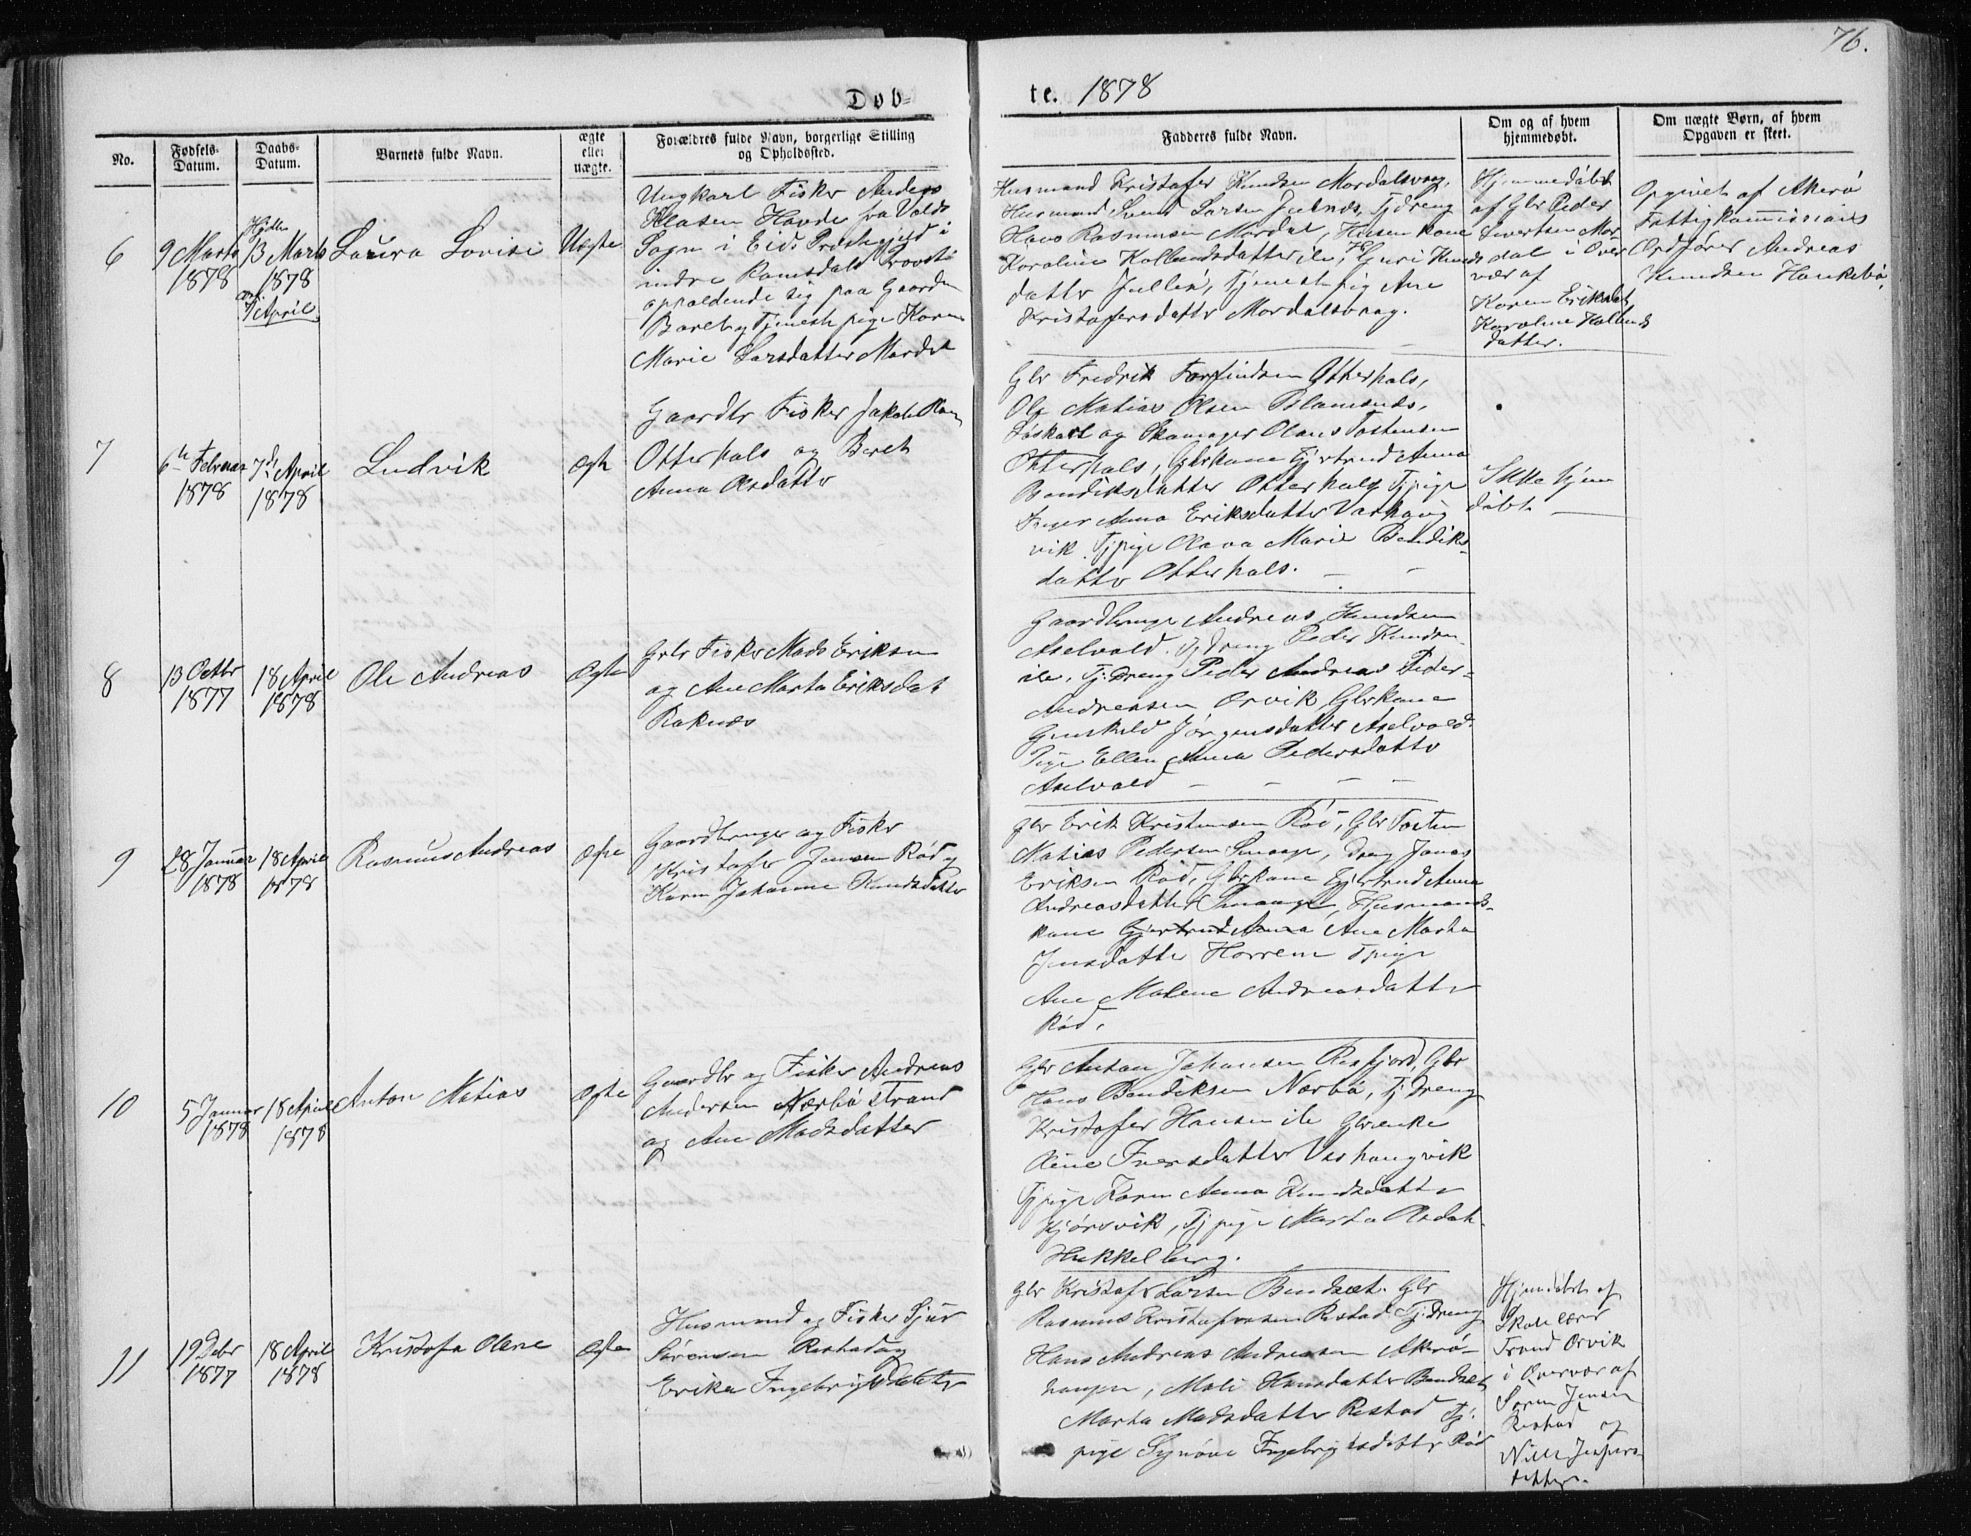 76.
Døb=
te. 1878
No.
Fødsels-
Datum.
Daabs-
Datum.
Barnets fulde Navn.
ægte
eller
uægte.
Forældres fulde Navn, borgerlige Stilling
og Opholdssted.
Fadderes fulde Navn.
Om og af hvem
hjemmedøbt.
Om uægte Børn, af hvem
Opgaven er skeet.
6
9 Marts
1878
Hjdbt
13 Marts
1878
7 April
Laura Lovise
Uægte
Ungkarl Fisker Anders
Klasen Havde fra Volds
Sogn i Eids Præstegjeld i
indre Romsdals Provsti
oppaldende sig paa Gaarden
og Tjenestepige Karen
Marie Larsdatter Mordal
Husmand Kristofer Knudsen Mordalsvaag,
Husmand Svend Larsen Julnes, Tj.dreng
Hans Rasmusen Mordal, Husm Kone
Karoline Kollandsdatter ile, Guri Knuds
datter Jullen, Tjenestepig Ane
Kristofersdatter Mordalsvaag.
Hjemmedøbt
af Gbr Peder
Sivertsen Mor
dal i Over
vær af
Karen Eriksdat
Karoline Kollands
datter.
Opgivet af Akerø
Fattigkommissions
Ordfører Andreas
Knudsen Haukebø.
7
6te Februar
1878
7de April
1878
Ludvik
Ægte
Gaardbr Fisker Jakob
Otterhals og Beret
Anna Olsdatter
Gbr Fredrik Torfindsen Otterhals,
Ole Matias Olsen Blamands,
og Skomager Olaus Tostensen
Otterhals, Gbrkone Gjertrud Anna
Bendiksdatter Otterhals Tjpige
Inger Anna Eriksdatter Vashaug
vik. Tjpige Olava Marie Bendiks-
datter Otterhals. — -
Ikke hjem
døbt —
8
13 Octbr
1877
18 April
1878
Ole Andreas
Ægte
Gbr Fisker Mads Eriksen
og Ane Marta Eriksdat
Raknes
Gaardbruger Andreas Knudsen
Aselvold. Tj Dreng Peder Knudsen
ile, Tj. Dreng Peder Andreas Peder-
Andreasen Orvik Gbrkone
Gunhild Jørgensdatter Aselvold.
Pige Ellen Anna Pedersdatter
Aselvold — — — -
9
28 Januar
1878
18 April
1878
Rasmus Andreas
Ægte
Gaardbruger og Fisker
Kristofer Jensen Rød og
Karen Johanne Knudsdatter
Gbr Erik Kristensen Rød, Gbr Tosten
Matias Pedersen Smaage, Dreng Jonas
Eriksen Rød, Gbrkone Gjertrud Anna
Andreasdatter Smaage, Husmands-
kone Gjertrud Anna Ane Marta
Jensdatter Horrem Tpige
Ane Malene Andreasdatter
Rød.
10
5 Januar
1878
18 April
1878
Anton Matias
Ægte
Gaardbr og Fisker Andreas
Andersen Nærbø strand
og Ane Madsdatter
Gbr Anton Johansen Risfjord, Gbr
Hans Bendiksen Nærbø, Tj Dreng
Kristofer Hansen ile Gbrenke
Oline Iversdatter Vashaugvik
Tjpige Karen Anna Knudsdatter
Hjørsvik, Tj pige Marta Olsdat.
Hukkelberg.
11
19 Debr
1877
18 April
1878
Kristofa Olene
Ægte
Husmand og Fisker Sjur
Sørensen Restad og
Erika Ingebrigtsdatter
Gbr Kristofer Larsen Bendset. Gbr
Rasmus Kristofersen Restad Tj.dreng
Hans Andreas Andreasen Akerø-
haugen, Mali Hansdatter Bendset
Marta Madsdatter Restad Tj.
pige Synøve Ingebrigtsdatter Rød
Hjemdøbt af
Skolelærer
Trond Orvik
i Overvær af
Søren Jensen
Restad og
Nille Jespers
datter.